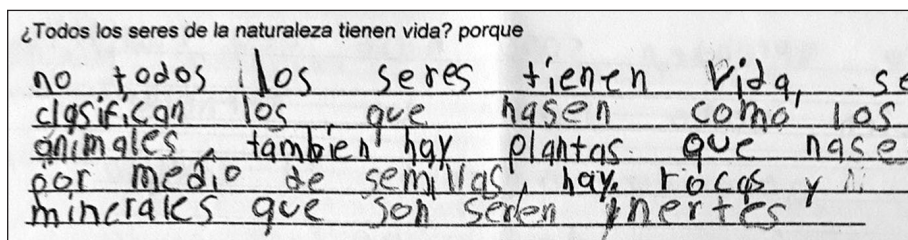 ¿Todos los seres de la naturaleza tienen vida? porque
no todos los seres tienen vida, se
clasifican los que nasen como los
animales, tambien hay plantas que nase
por medio de semillas, hay rocas y
minerales que son seren ynertes